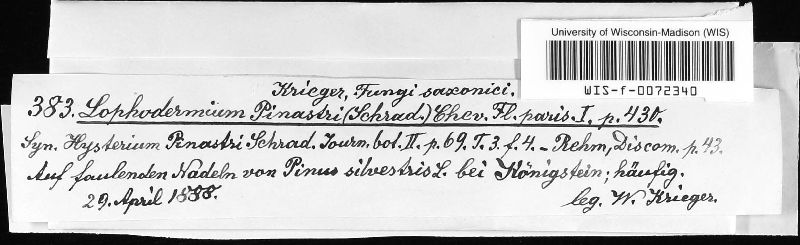 University of Wisconsin-Madison (WIS)
WIS-f-0072340
Krieger, Fungi saxonici.
383. Lophodermium Pinastri (Schrad.) Chev. Fl. paris. I. p. 430.
Syn. Hysterium Pinastri Schrad. Journ. bot. II. p. 69. T. 3. f. 4. – Rehm, Discom. p. 43.
Auf faulenden Nadeln von Pinus silvestris L. bei Königstein; häufig.
29. April 1888. leg. W. Krieger.